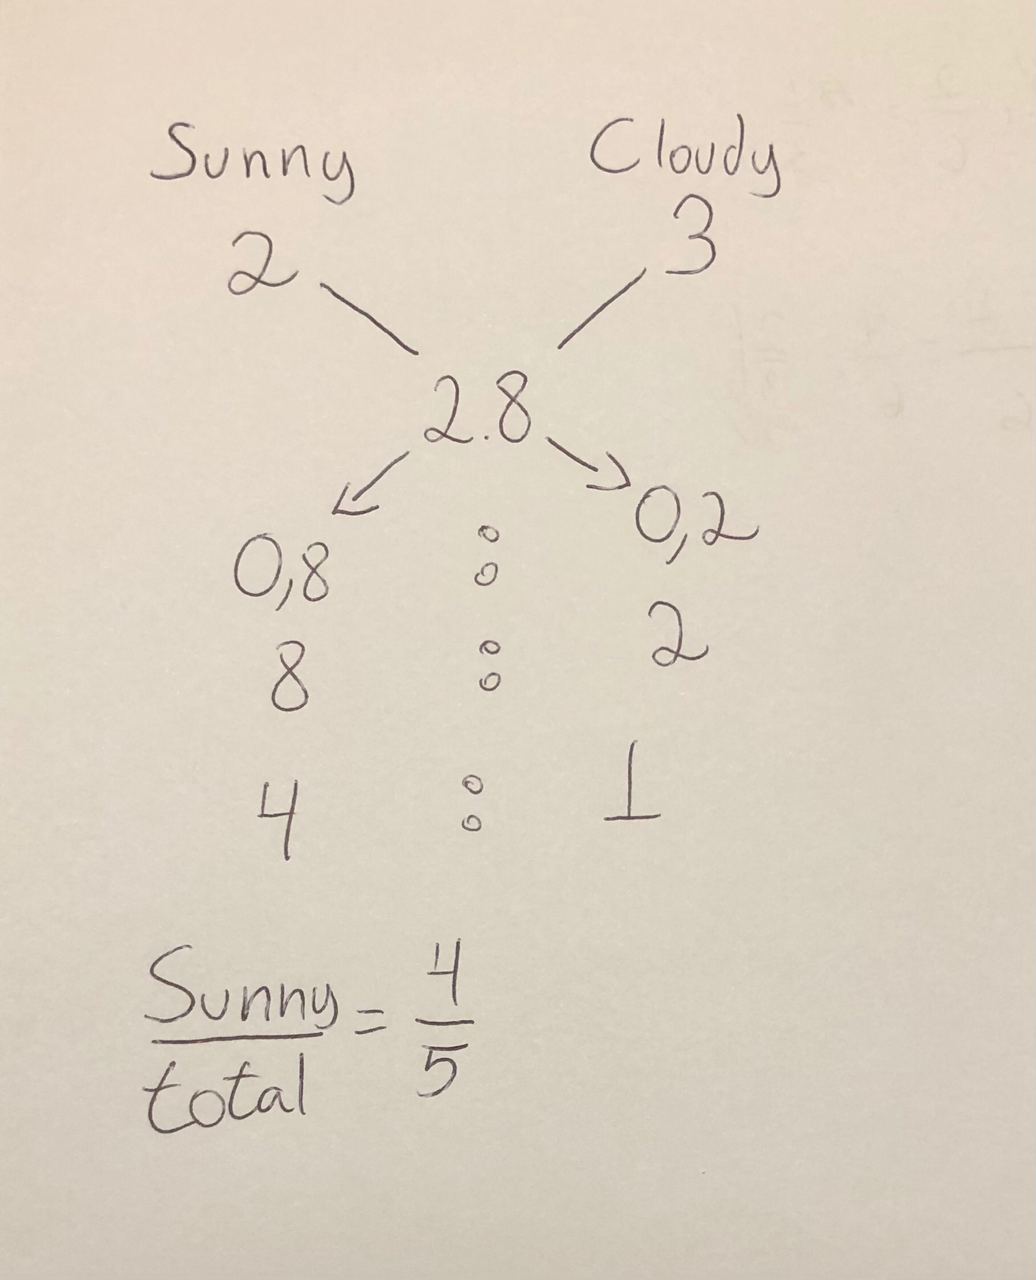 Sunny Cloudy
2 3
2.8
0,8 : 0,2
8 : 2
4 : 1
Sunny/total = 4/5